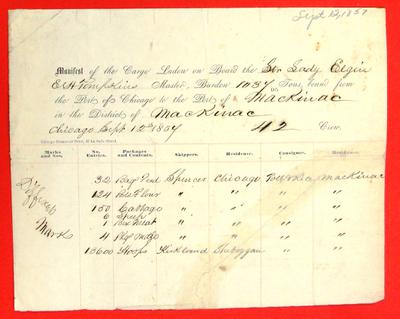 Sept 12, 1857
Manifest of the Cargo Laden on Board the Str Lady Elgin
E. H. Tompkins Master, Burden 1037 Tons, bound from
the Port of Chicago to the Port of Mackinac
in the District of Mackinac
Chicago Sept 12th 1857 42 Crew.
Marks and Nos. No. Entries. Packages and Contents. Shippers. Residence. Consignee. Residence.
32 Spencer Chicago Mackinac
124 Bbls Flour " " " "
150 Cabbage " " " "
6 " " " "
1 Box Meat " " " "
Mark 4 Pkgs " " " "
13600 Hoops Kirkland Sheboygan " "